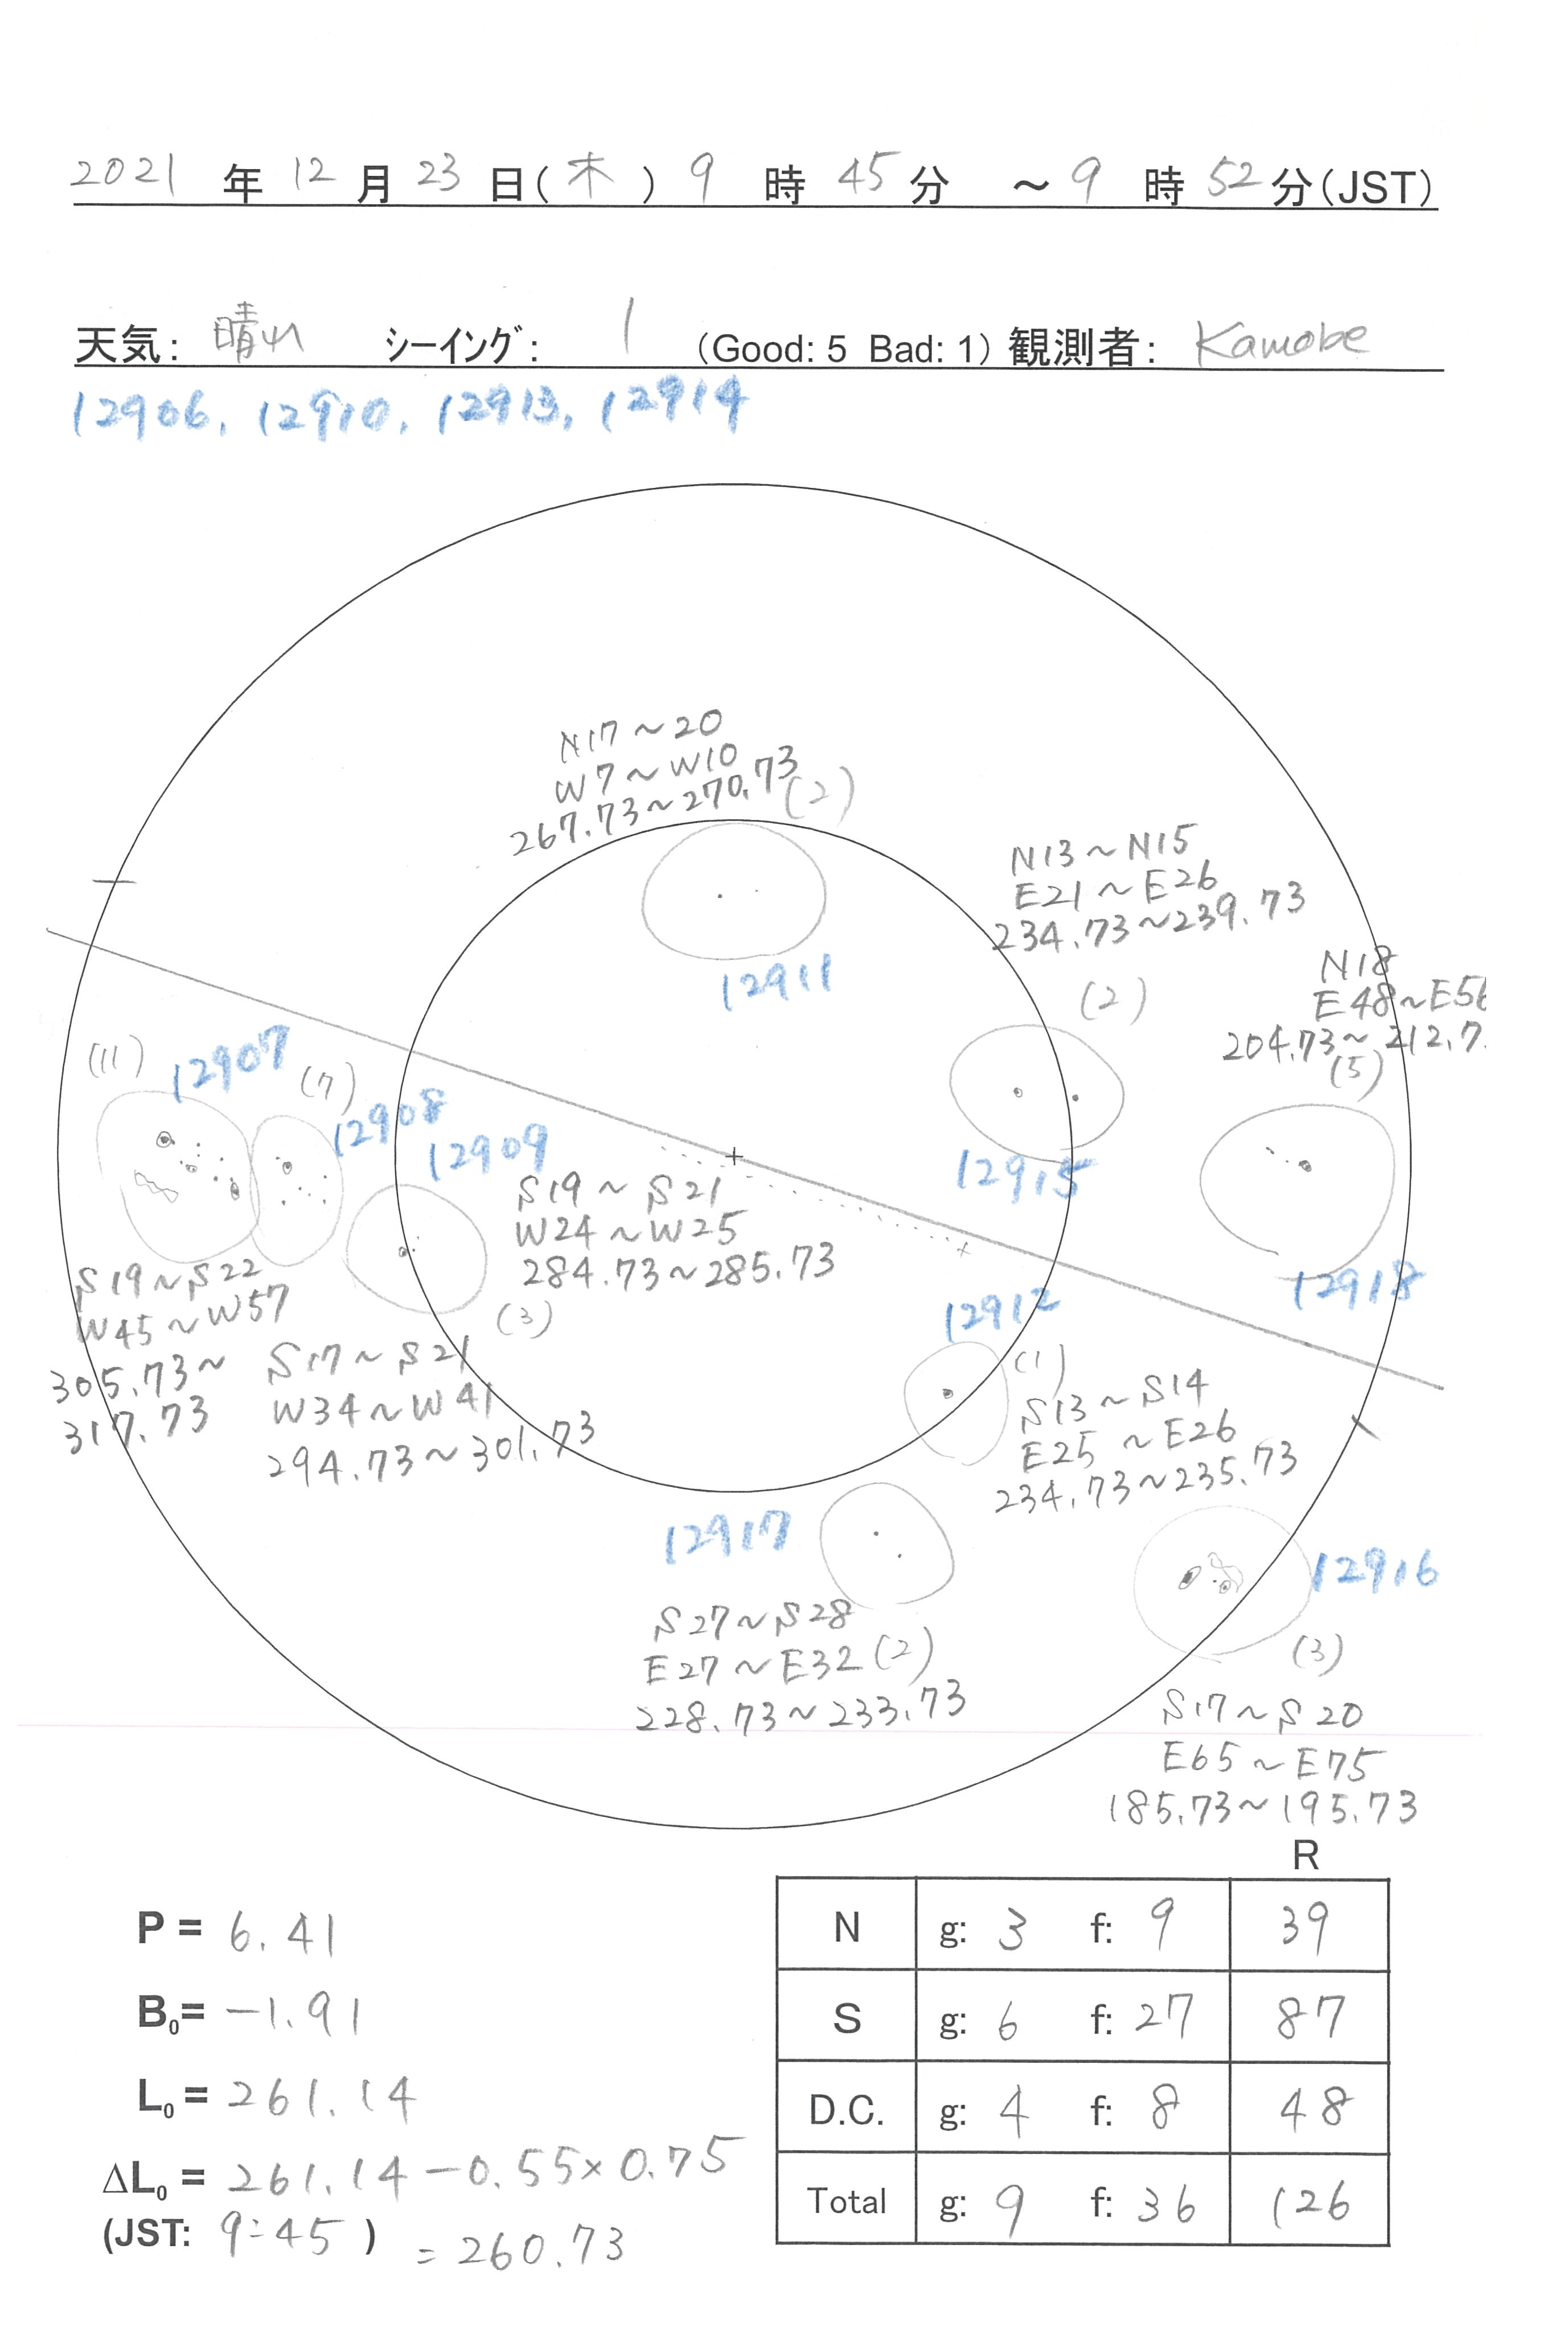 2021 年 12 月 23 日(木) 9 時 45 分 ～9 時 52 分(JST)
天気: 晴れ ｼｰｲﾝｸﾞ: 1 (Good: 5 Bad: 1) 観測者: Kamobe
12906, 12910, 12913, 12914
N17～20
W7～W10
267.73～270.73
(2)
12911
N13～N15
E21～E26
234.73～239.73
(2)
12915
N18
E48～E56
204.73～212.7
(5)
12918
(11)
12907
(7)
12908
12909
S19～S21
W24～W25
284.73～285.73
(3)
S19～S22
W45～W57
305.73～
317.73
S17～S21
W34～W41
294.73～301.73
12912
(1)
S13～S14
E25～E26
234.73～235.73
12917
S27～S28
E27～E32 (2)
228.73～233.73
12916
(3)
S17～S20
E65～E75
185.73～195.73
R
P = 6.41
B0= -1.91
L0 = 261.14
ΔL0 = 261.14-0.55×0.75
(JST: 9:45 ) = 260.73
N g: 3 f: 9 39
S g: 6 f: 27 87
D.C. g: 4 f: 8 48
Total g: 9 f: 36 126